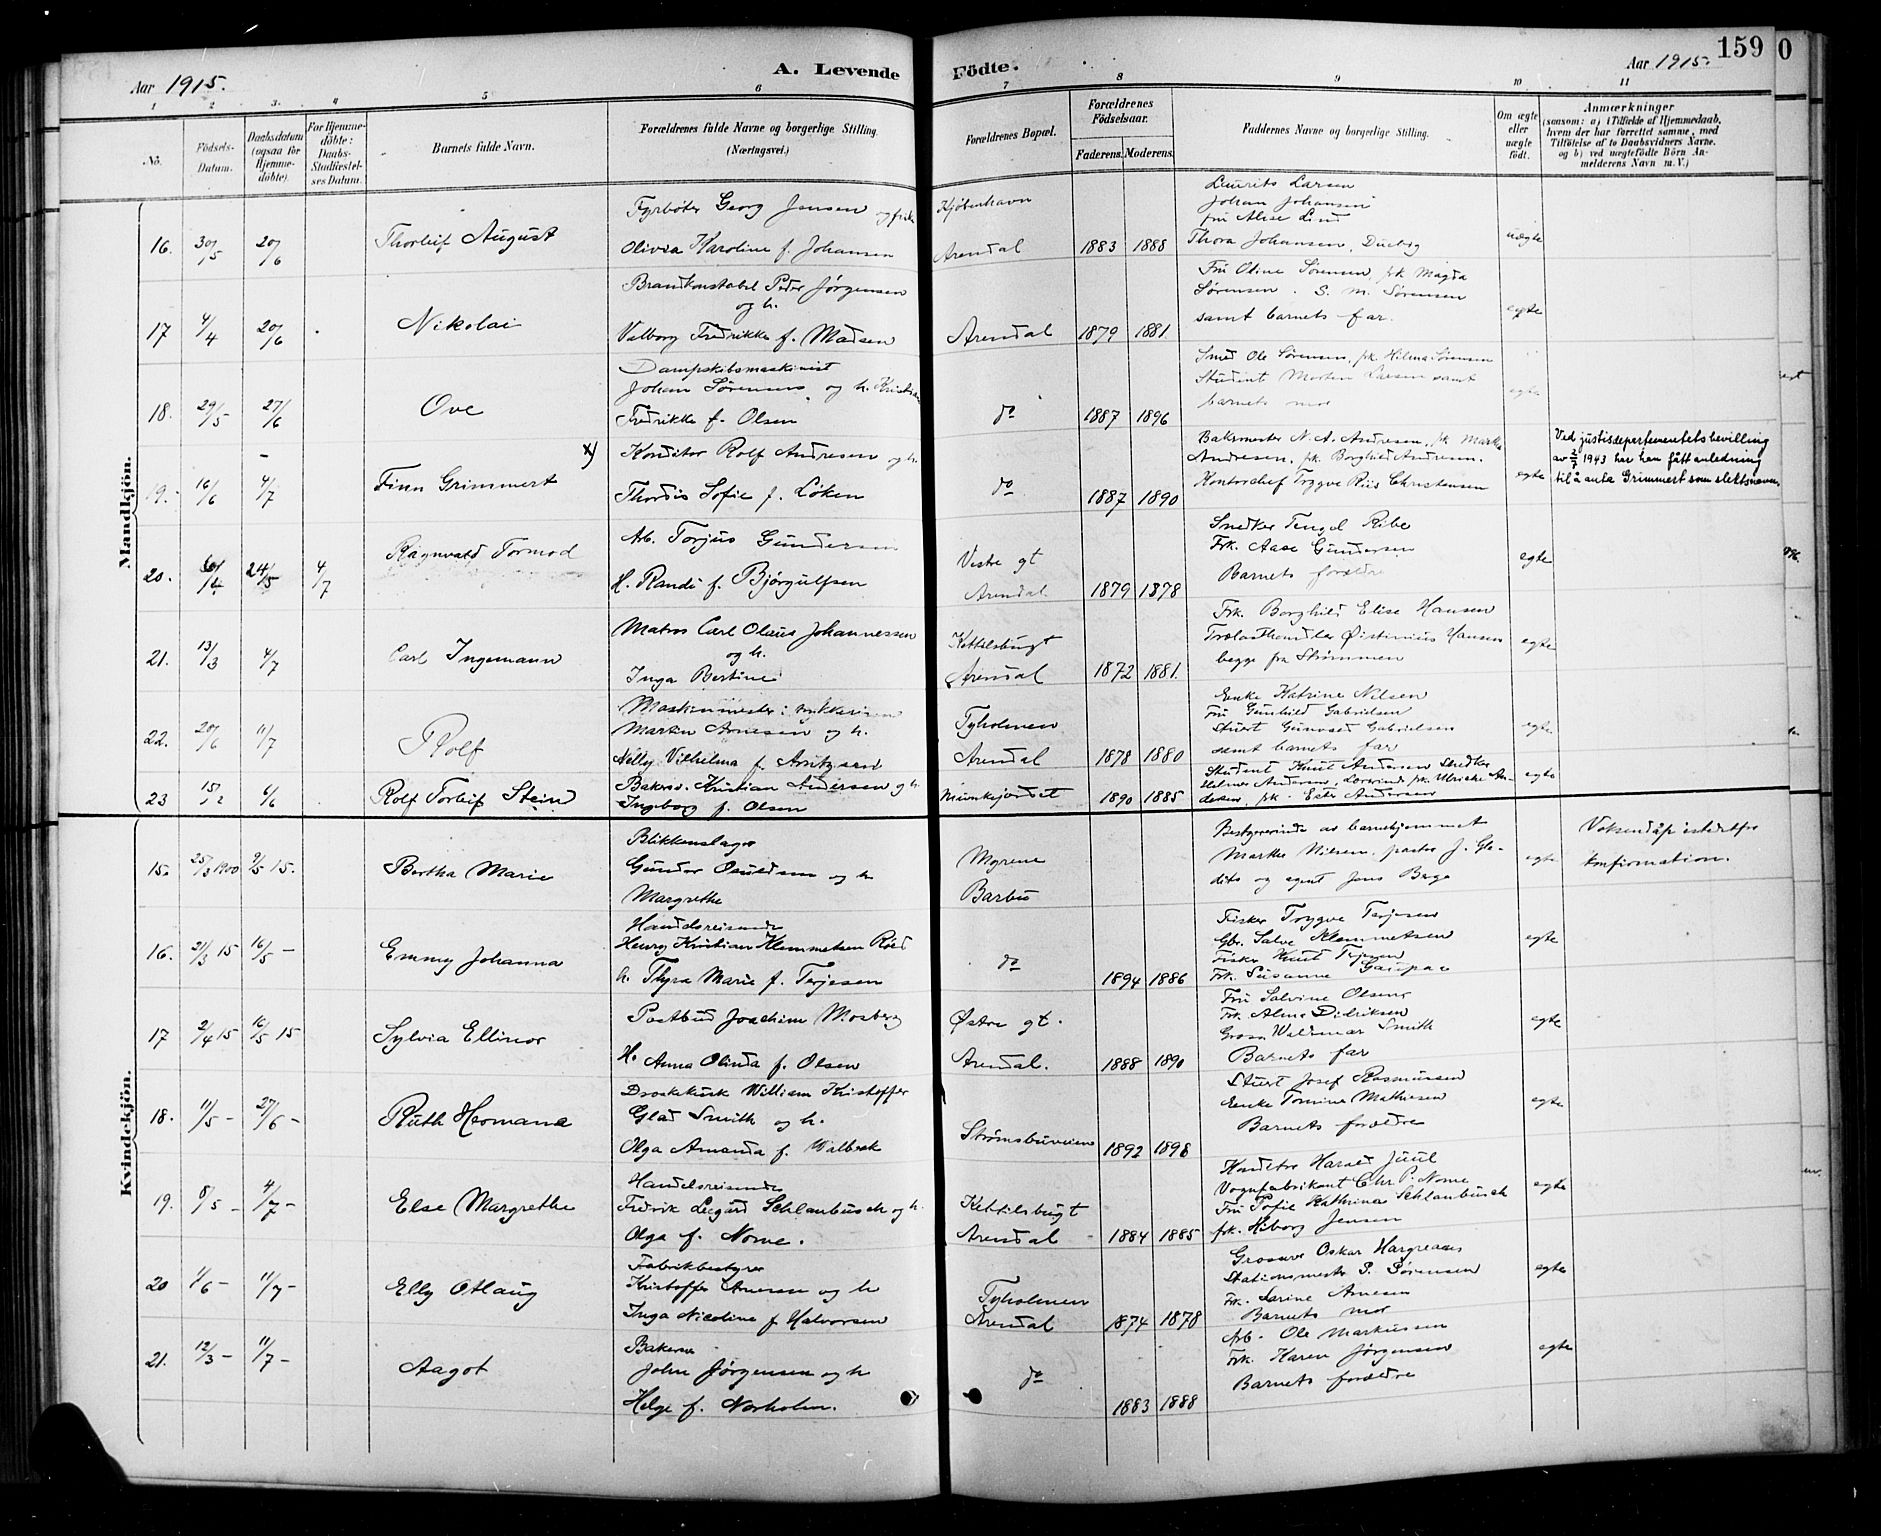 159
0
Aar 1915.
A. Levende Födte.
Aar 1915.
1 2 3. 4 5 6 7 8 9 10 11
No.
Födsels-Datum.
Daabsdatum (ogsaa for Hjemme-döbte).
For Hjemme-döbte: Daabs-Stadfæstel-ses Datum.
Barnets fulde Navn.
Forældrenes fulde Navne og borgerlige Stilling. (Næringsvei.)
Forældrenes Bopæl.
Forældrenes Födselsaar.
Faderens. Moderens.
Faddernes Navne og borgerlige Stilling.
Om ægte eller uægte födt.
Anmærkninger
(saasom: a) i Tilfælde af Hjemmedaab, hvem der har forrettet samme, med Tilföielse af to Daabsvidners Navne. og b) ved uægtefödte Börn An-melderens Navn m. V.)
Mandkjön.
16. 30/5 20/6 Thorleif August
Fyrbøter Georg Jensen og frk.
Olivia Karoline f. Johansen
Kjøbenhavn
Arendal 1883 1888
Laurits Larsen
Johan Johansen
fru Alise Lind
Thora Johansen,
uægte
17 4/4 20/6 Nikolai
Brandkonstabel Peder Jørgensen
og h.
Valborg Fredrikke f. Madsen
Arendal 1879 1881.
Fru Oline Sørensen, frk Magda
Sørensen. S. M. Sørensen
samt barnets far.
egte
18. 29/5 27/6 Ove
Dampskibsmaskinist
Johan Sørensen, og h. Kristine
Fredrikke f. Olsen
do 1887 1896
Smed Ole Sørensen, frk. Hilma Sørensen
Student Morten Larsen samt
barnets mor
egte
19. 16/6 4/7 Finn Grimmert x)
Konditor Rolf Andresen og h.
Thordis Sofie f. Löken
do 1887 1890
Bakermester N. A. Andresen, frk Martha
Andresen, frk. Borghild Andresen.
Kontorchef Trygve Riis Christensen
egte
Ved justisdepartementets bevilling
av 2/7 1943 har han fått anledning
til å anta Grimmert som slektsnavn
20. 24/5 4/7 Ragnvald Tormod
Arb. Torjus Gundersen
H. Randi f. Bjørgulfsen
Vestre gt
Arendal. 1879 1878
Snedker Tengel Ribe
Frk. Aase Gundersen
Barnets forældre
egte
21. 13/3 4/7 Carl Ingemann
Matros Carl Olaus Johannessen
og h.
Inga Bertine
Kittilsbugt
Arendal 1872 1881.
Frk. Borghild Elise Hansen
Trælasthandler Østinius Hansen
begge fra Strømmen
egte
22. 20/6 11/7 Rolf
Maskinmester i
Martin Arnesen og h.
Nelly Vilhelma f.
Tyholmen
Arendal 1878 1880
Enke Katrine Nilsen
Fru Gunhild Gabrielsen
Stuert Gunvald Gabrielsen
samt barnets far
egte
23 6/6 Rolf Torleif Stein
Bakersv. Kristian Andersen og h.
Ingborg f. Olsen
Munkejordet 1890 1885
Student Knut Andersen Snedker
Helmer Andersen, Lærerinde frk. Ulrikke An-
dersen, frk. Ester Andersen
egte
Kvindekjön.
15. 25/3 1900 9/5 15. Bertha Marie
Blikkenslager
Gunder Osuldsen og h
Margrethe
Myrene
Barbu
Bestyrerinde av barnehjemmet
Marthe Nilsen, pastor J. Gle-
ditz og agent Jens Berge
egte
Voksendåp istedetfor
konfirmation.
16. 21/3 15 16/5 - Emmy Johanna
Handelsreisende
Henry Kristian Klemmetsen Röed
h. Thyra Marie f. Terjesen
do 1894 1886
Fisker Trygve Terjesen
Gbr. Salve Klemmetsen
Fisker Knut Terjesen
Frk. Susanne
egte
17 2/4 15 16/5 15 Sylvia Ellinor
Postbud Joachim Mosberg
H. Anna Olinda f. Olsen
Østre gt.
Arendal. 1888 1890
Fru Salvine Olsen
Frk. Alma Didriksen
Gross. Waldemar Smith
Barnets far
egte
18. 11/5 - 27/6 - Ruth Hermana
Droskekusk William Kristoffer
Glad Smith og h.
Olga Amanda f. Walbæk
Strømsbuveien 1892 1898
Stuert Josef Rasmussen
Enke Tomine Mathisen
Barnets forældre
egte
19. 8/5 - 4/7 - Else Margrethe
Handelsreisende
Fredrik Lægård Schlanbusch og h.
Olga f. Nome.
Kittilsbugt
Arendal 1884 1885
Konditor Harald Juul
Vognfabrikant Chr. P. Nome
Fru Sofie Kathrine Schlanbusch
frk. Hiborg Jensen
egte
20 1/6 - 11/7 - Elly Otlaug
Fabrikbestyrer
Kristoffer Arnesen og h
Inga Nicoline f Halvorsen
Tyholmen
Arendal 1874 1878
Grosserer Oskar Hargreaves
Stationsmester P. Sørensen
Frk. Karine Arnesen
Barnets mor
egte
21. 12/3 - 11/7 - Aagot
Bakersv.
John Jørgensen og h
Helga f. Norholm.
do 1883 1888
Arb. Ole Markussen
Frk. Karen Jørgensen
Barnets forældre
egte